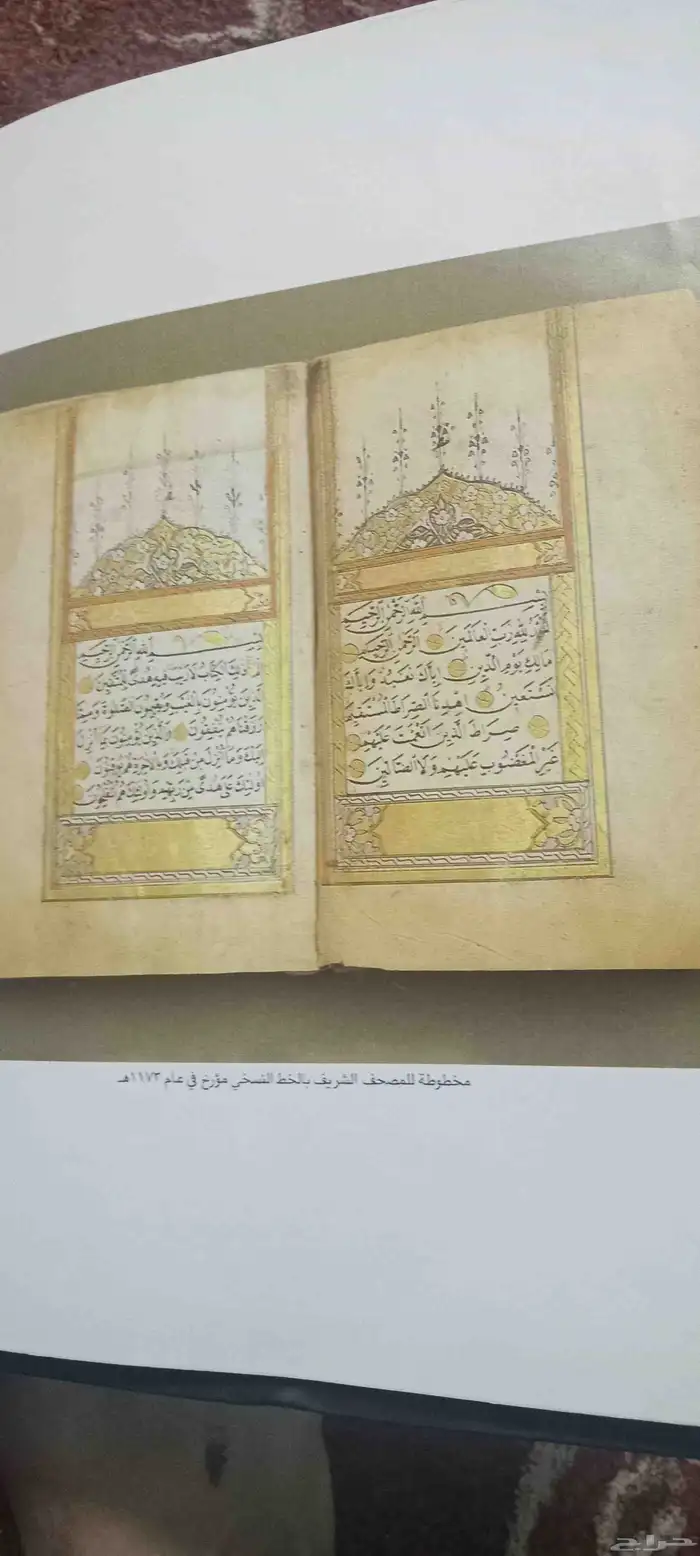 بسم الله الرحمن الرحيم
الحمد لله رب العالمين الرحمن الرحيم
مالك يوم الدين اياك نعبد واياك
نستعين اهدنا الصراط المستقيم
صراط الذين انعمت عليهم
غير المغضوب عليهم ولا الضالين
بسم الله الرحمن الرحيم
الم ذلك الكتاب لا ريب فيه هدى للمتقين
الذين يؤمنون بالغيب ويقيمون الصلوة ومما
رزقناهم ينفقون والذين يؤمنون بما انزل
اليك وما انزل من قبلك وبالآخرة هم يوقنون
اولئك على هدى من ربهم واولئك هم المفلحون
مخطوطة للمصحف الشريف بالخط النسخي مؤرخ في عام ١١٧٣هـ
حراج